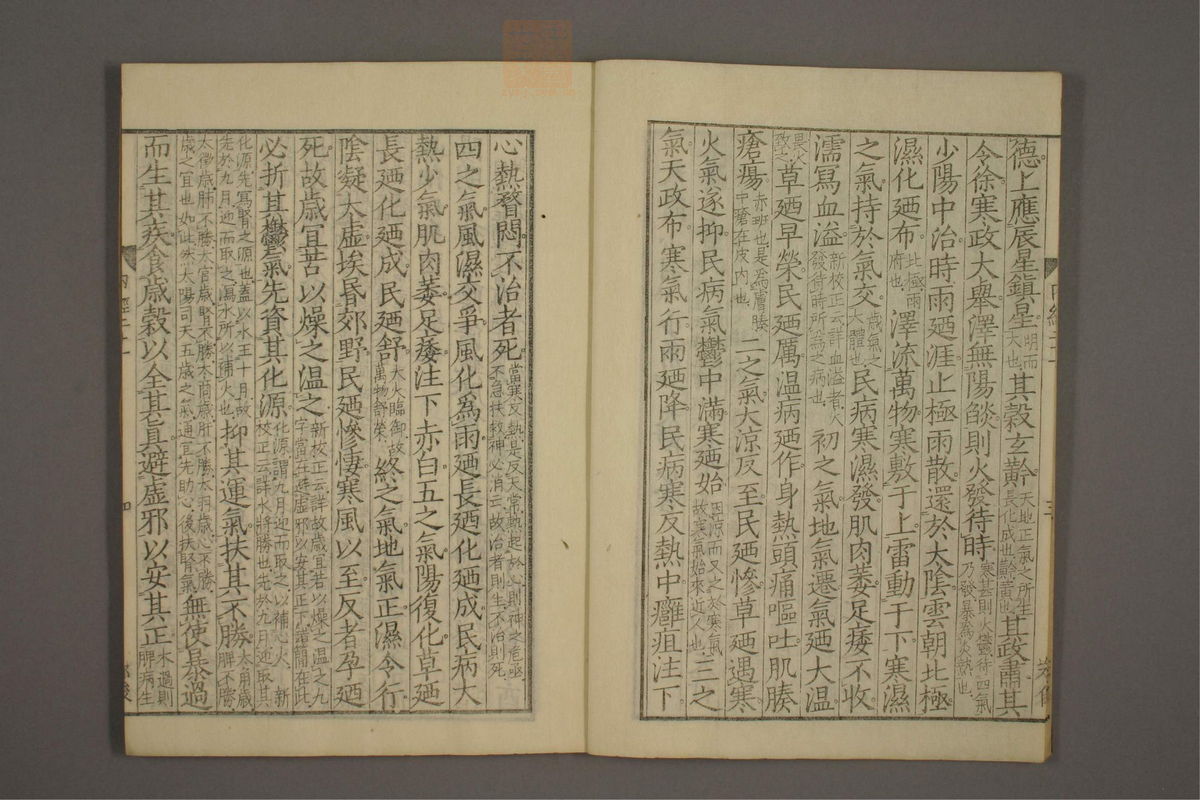 德上應辰星鎮星明而大也其穀玄黅天地正氣之所生長化成也黅黃也其政肅其
令徐寒政大舉澤無陽燄則火發待時寒甚則火鬱待四氣乃發暴爲炎熱也
少陽中治時雨廼涯止極雨散還於太陰雲朝北極
濕化廼布北極雨府也澤流萬物寒敷于上雷動于下寒濕
之氣持於氣交歲氣之大體也民病寒濕發肌肉萎足痿不收
濡寫血溢新校正云詳血溢者火發待時所爲之病也初之氣地氣遷氣廼大温
畏火致之草廼早榮民廼厲温病廼作身熱頭痛嘔吐肌腠
瘡瘍赤班也是爲膚腠中瘡在皮內也二之氣大涼反至民廼慘草廼遇寒
火氣遂抑民病氣鬱中滿寒廼始因涼而又之於寒氣故寒氣始來近人也三之
氣天政布寒氣行雨廼降民病寒反熱中癰疽注下
心熱瞀悶不治者死當寒反熱是反天常熱起於心則神之危亟不急扶救神必消亡故治者則生不治則死
四之氣風濕交爭風化爲雨廼長廼化廼成民病大
熱少氣肌肉萎足痿注下赤白五之氣陽復化草廼
長廼化廼成民廼舒大火臨御故萬物舒榮終之氣地氣正濕令行
陰凝太虛埃昏郊野民廼慘悽寒風以至反者孕廼
死故歲宜苦以燥之温之新校正云詳故歲宜苦以燥之温之九字當在避虛邪以安其正下錯簡在此
必折其鬱氣先資其化源化源謂九月迎而取之以補心火新校正云詳水將勝也先於九月迎取其
化源先瀉腎之源也蓋以水王十月故先於九月迎而取之瀉水所以補火也抑其運氣扶其不勝太角歲脾不勝
太徵歲肺不勝太宮歲腎不勝太商歲肝不勝太羽歲心不勝歲之宜也如此然太陽司天五歲之氣通宜先助心後扶腎氣無使暴過
而生其疾食歲穀以全其眞避虛邪以安其正木過則脾病生